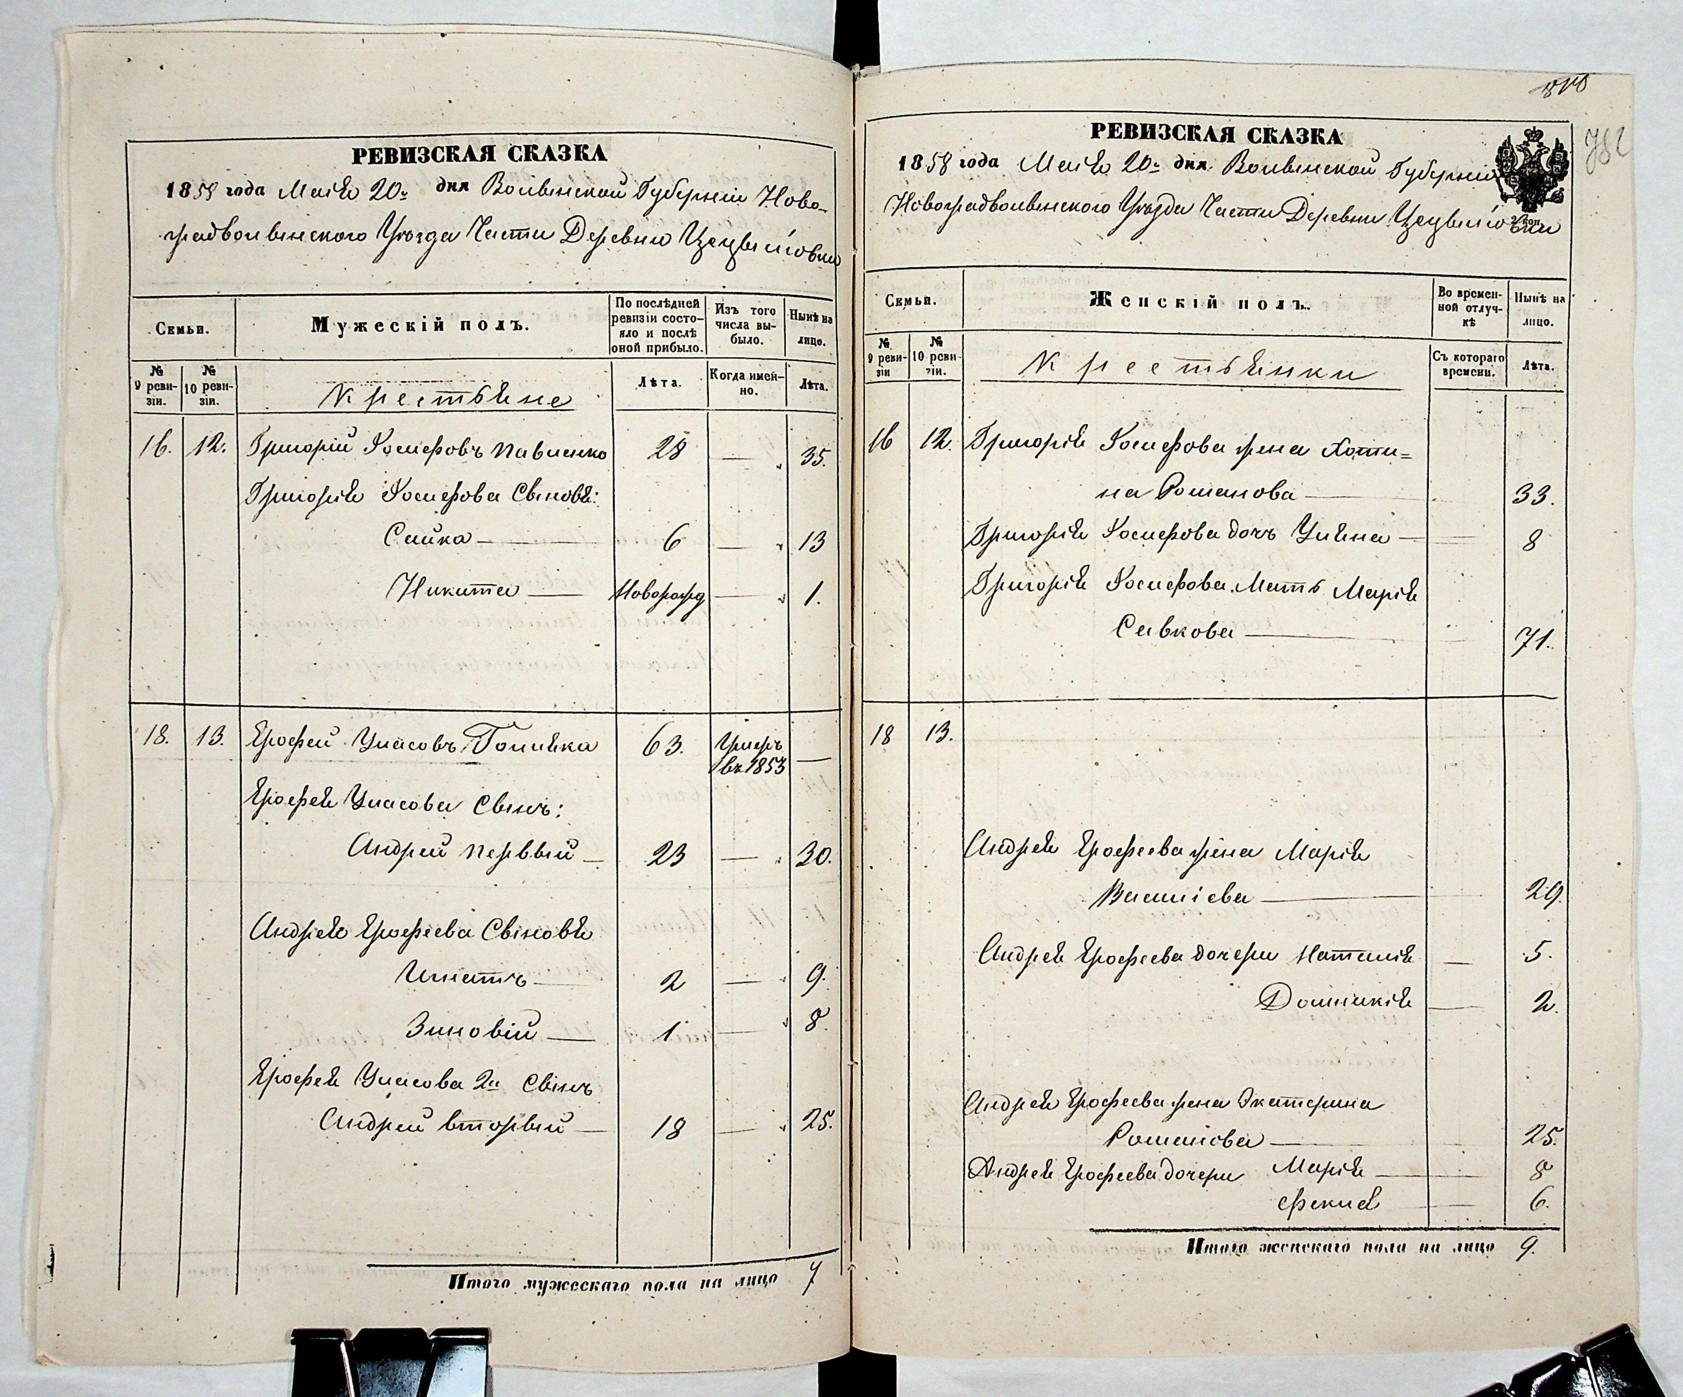 РЕВИЗСКАЯ СКАЗКА
1858 года Маія 20го дня Волынской Губерніи Ново-
градволынского Уѣзда Части Деревни
Семьи.
Мужескій полъ.
По послѣдней ревизіи состояло и послѣ оной прибыло.
Изъ того числа выбыло.
Нынѣ на лицо.
№ 9 ревизіи.
№ 10 ревизіи.
Крестьяне
Лѣта.
Когда именно.
Лѣта.
16. 12. Григорій Іосифовъ Павленко 28 — 35.
Григорія Іосифова Сыновья:
Савка — 6 — 13
Никита — Новорожд — 1.
18. 13. Ерофей Уласовъ 63. Умеръ —
въ 1853
Ерофея Уласова Сынъ:
Андрей первый — 23 — 30.
Андрея Ерофеева Сыновья
Игнатъ — 2 — 9.
Зиновій — 1 — 8.
Ерофея Уласова 2й Сынъ
Андрей вторый — 18 — 25.
Итого мужескаго пола на лицо 7
782
РЕВИЗСКАЯ СКАЗКА
1858 года Маія 20го дня Волынской Губерніи
Новоградволынского Уѣзда Части Деревни
Семьи.
Женскій полъ.
Во временной отлучкѣ
Нынѣ на лицо.
№ 9 ревизіи
№ 10 ревизіи.
Крестьянки
Съ котораго времени.
Лѣта.
16 12. Григорія Іосифова жена Хоти=
на Романова — 33.
Григорія Іосифова дочь Уліяна — 8
Григорія Іосифова Мать Марія
Савкова — 71.
18 13.
Андрея Ерофеева жена Марія
Василіева — 29.
Андрея Ерофеева дочери Наталія — 5.
Домникія — 2.
Андрея Ерофеева жена Екатерина
Романова — 25.
Андрея Ерофеева дочери Марія — 8
Фекла — 6.
Итого женскаго пола на лицо 9.